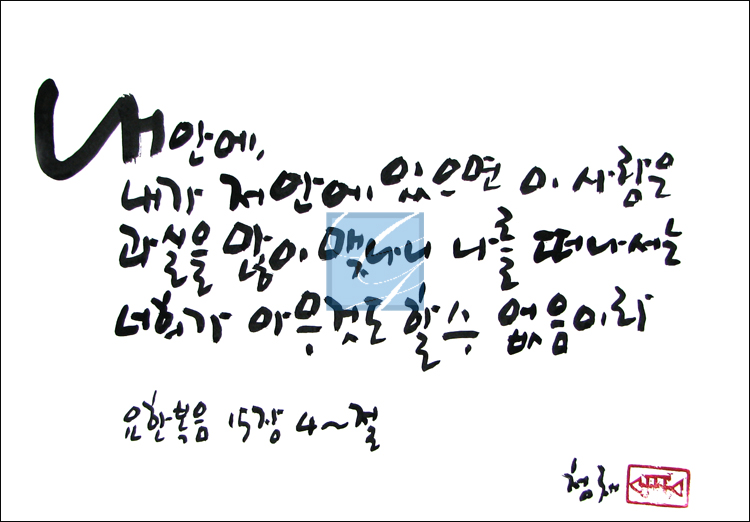 내안에,
내가 저 안에 있으면 이 사람은
과실을 많이 맺나니 나를 떠나서는
너희가 아무것도 할수 없음이라
요한복음 15장 4~절